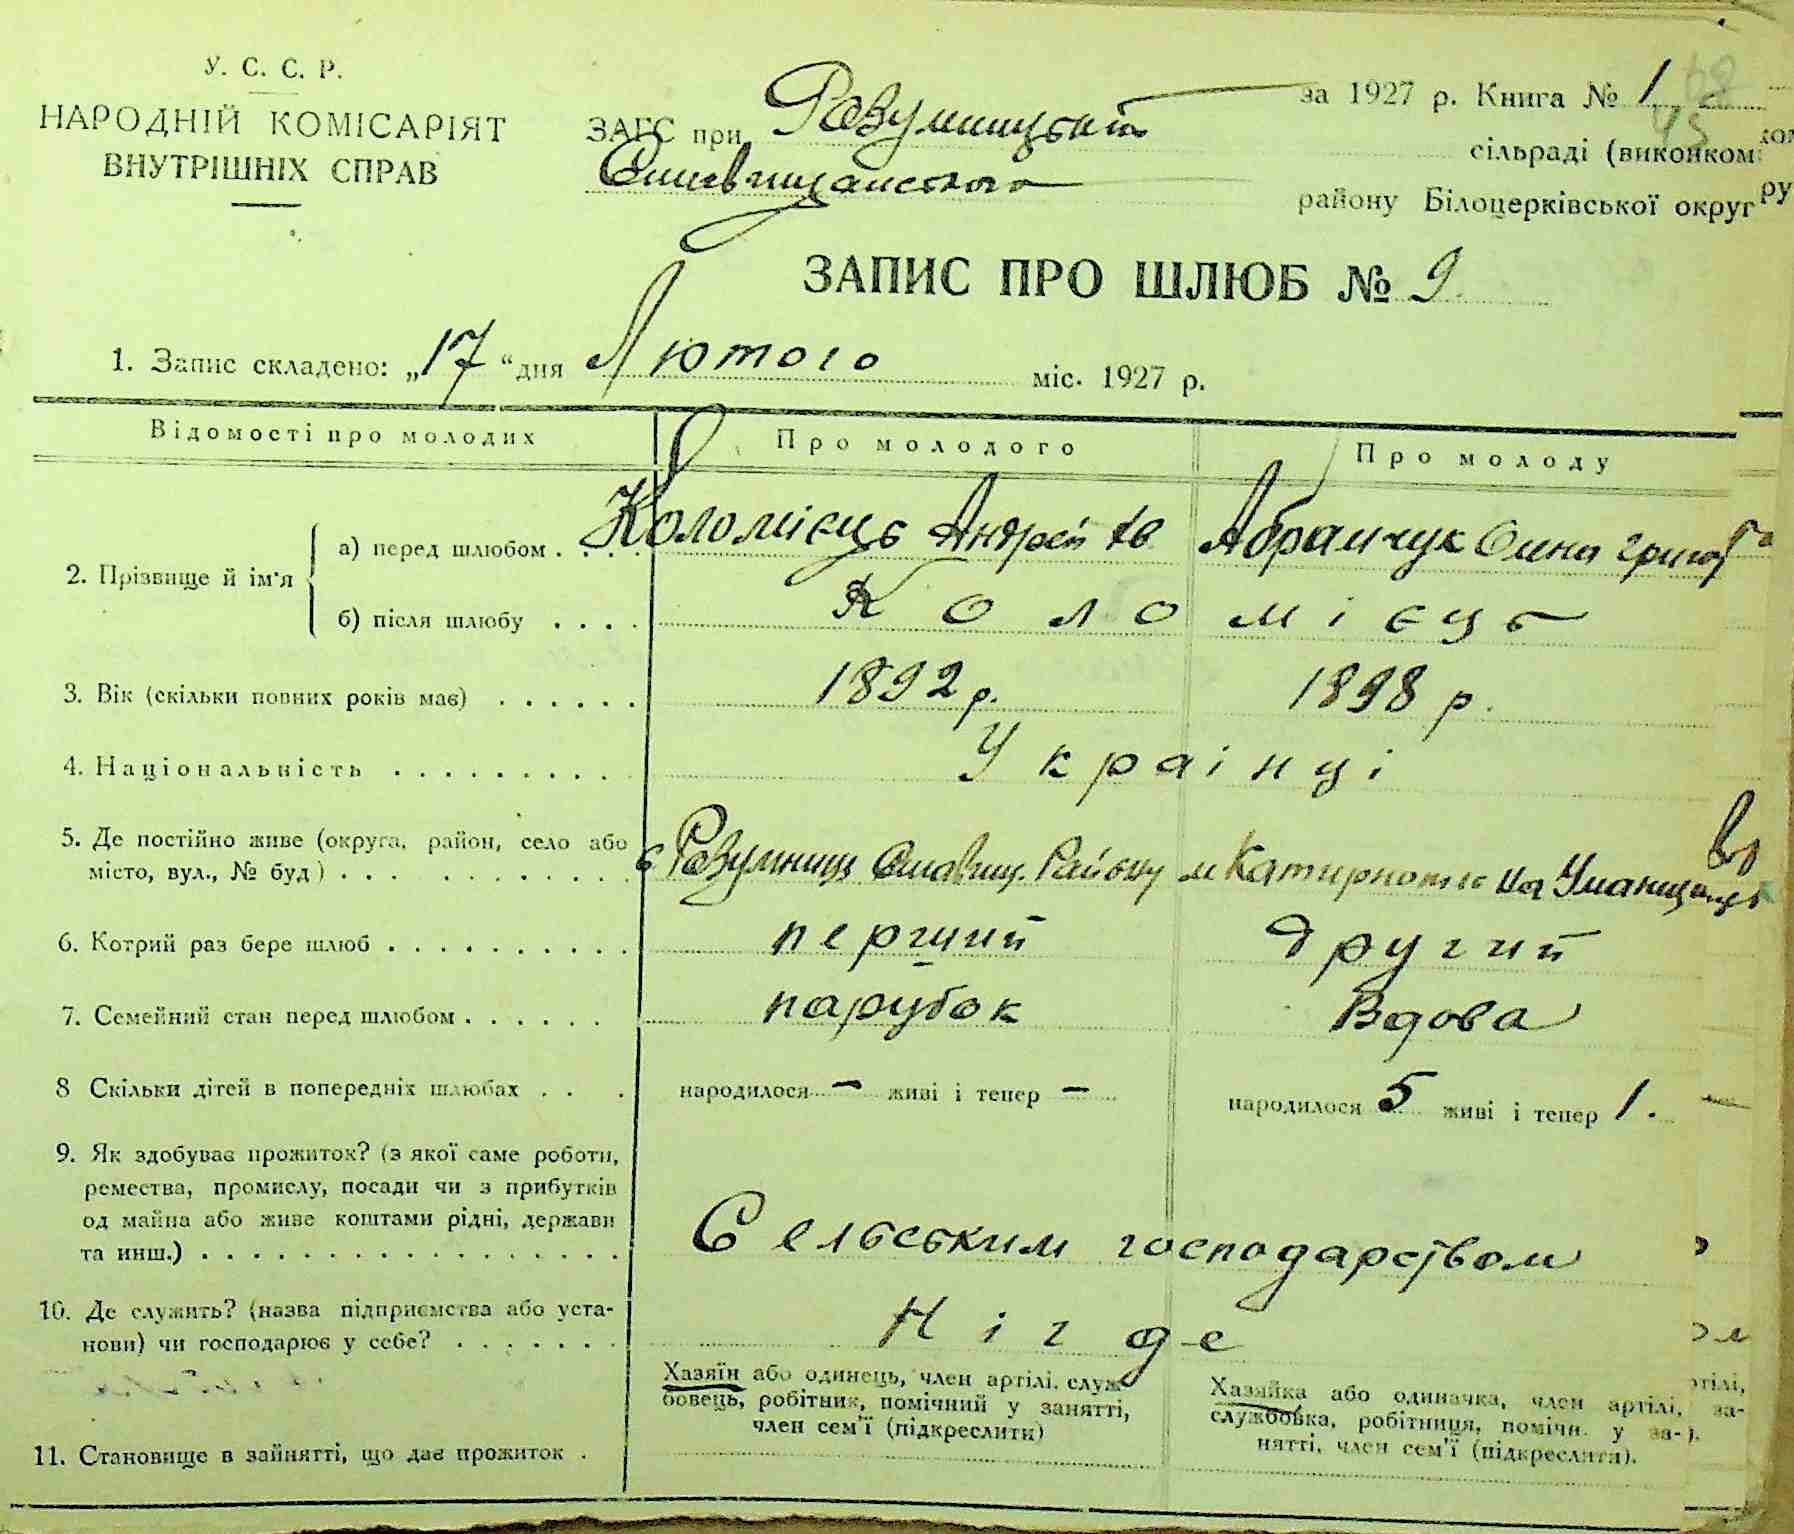 У. С. С. Р.
НАРОДНІЙ КОМІСАРІЯТ
ВНУТРІШНІХ СПРАВ
за 1927 р. Книга № 1
ЗАГС при сільраді (виконком
району Білоцерківської округ
ЗАПИС ПРО ШЛЮБ № 9.
1. Запис складено: „17“ дня Лютого міс. 1927 р.
Відомості про молодих Про молодого Про молоду
2. Прізвище й ім'я
а) перед шлюбом . . . . Коломієць Андрей Ів Абрамчук Григор
б) після шлюбу . . . . Коломієць
3. Вік (скільки повних років має) . . . . . . 1892 р. 1898 р.
4. Національність . . . . . . . . . . Украінці
5. Де постійно живе (округа, район, село або
місто, вул., № буд) . . . . . . . . . . . . с Району м на
6. Котрий раз бере шлюб . . . . . . . . . . перший другий
7. Семейний стан перед шлюбом . . . . . . парубок Вдова
8 Скільки дітей в попередніх шлюбах . . . народилося – живі і тепер – народилося 5 живі і тепер 1.
9. Як здобуває прожиток? (з якої саме роботи,
ремества, промислу, посади чи з прибутків
од майна або живе коштами рідні, держави
та инш.) . . . . . . . . . . . . . . . . . Сельським господарством
10. Де служить? (назва підприємства або уста-
нови) чи господарює у себе? . . . . . . . Нігде
11. Становище в зайнятті, що дає прожиток .
Хазяїн або одинець, член артілі, служ-
бовець, робітник, помічний у занятті,
член сем'ї (підкреслити)
Хазяйка або одиначка, член артілі,
службовка, робітниця, помічн. у за-
нятті, член сем'ї (підкреслити).